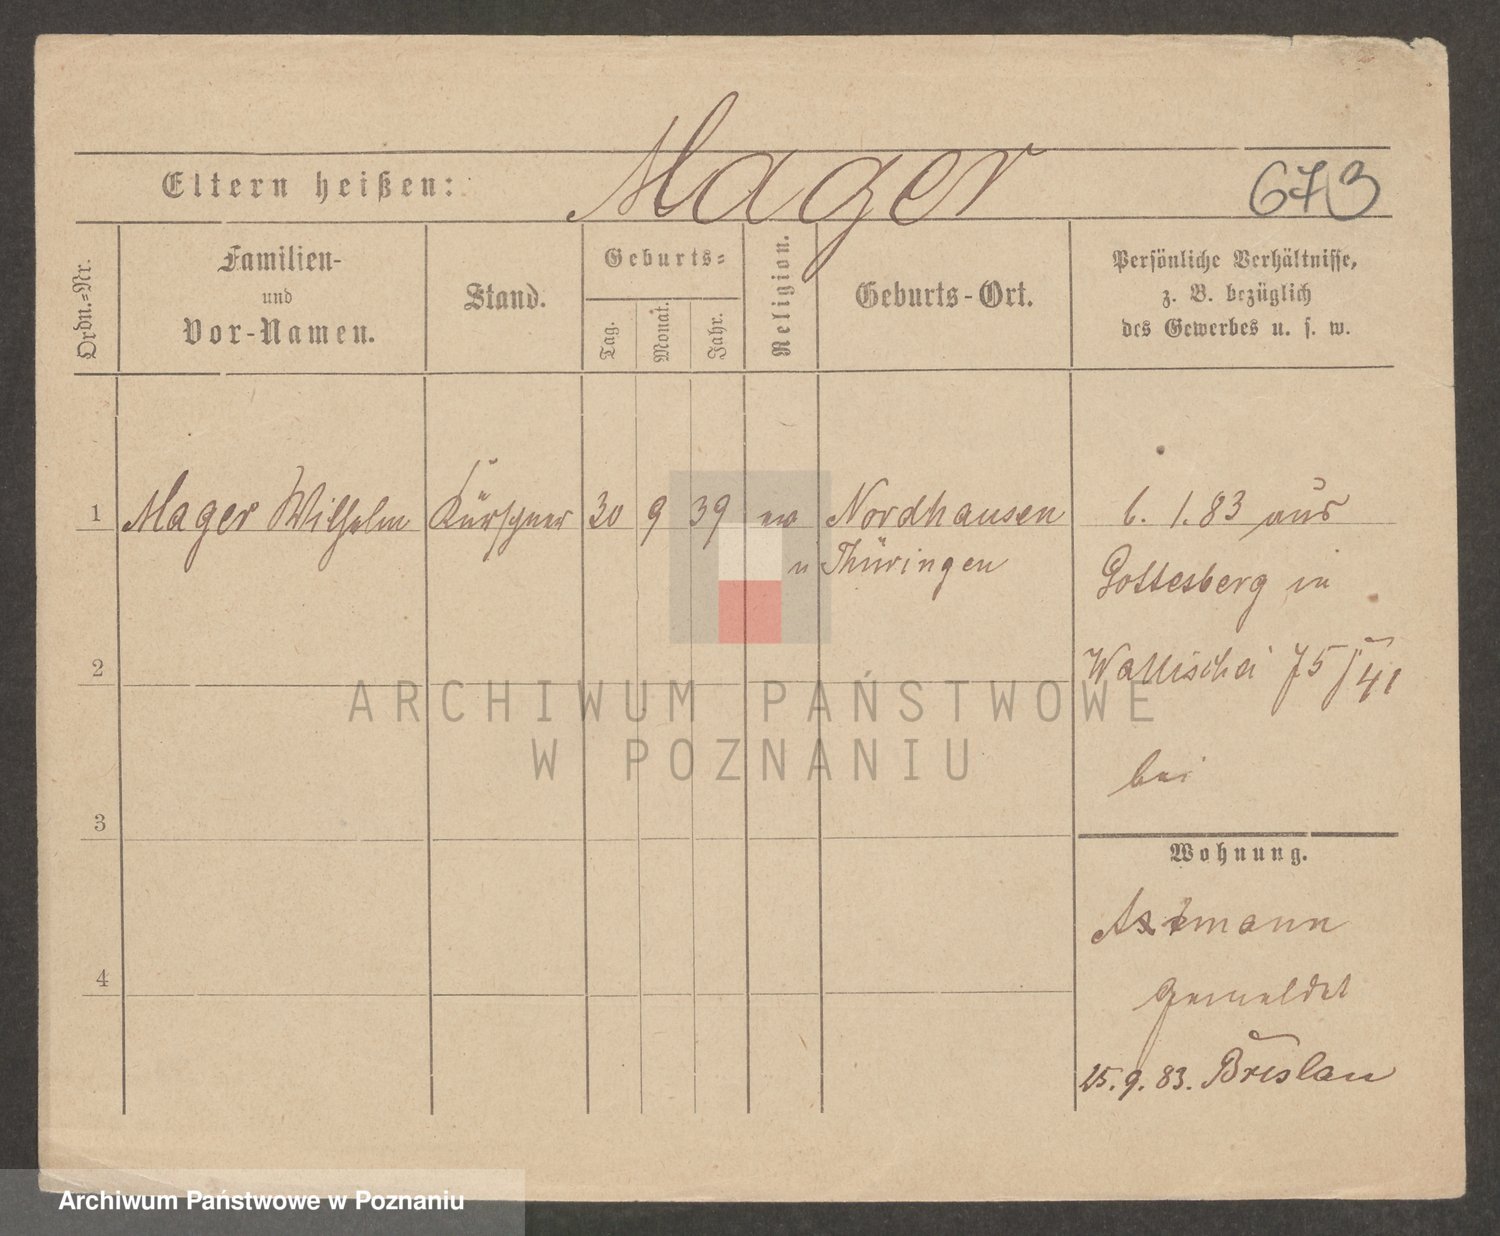 Mager
Eltern heißen:
673
Ordn.=Nr.
Familien-
und
Vor-Namen.
Stand.
Geburts=
Tag.
Monat.
Jahr.
Religion.
Geburts-Ort.
Persönliche Verhältnisse,
z. B. bezüglich
des Gewerbes u. s. w.
1 Mager Wilhelm Kürschner 30 9 39 ev Nordhausen 6. 1. 83 aus
Thüringen
Gottesberg in
2
Wallischei 75/41
bei
3
Wohnung.
mann
4
gemeldet
25. 9. 83. Breslau
ARCHIWUM PAŃSTWOWE
W POZNANIU
Archiwum Państwowe w Poznaniu